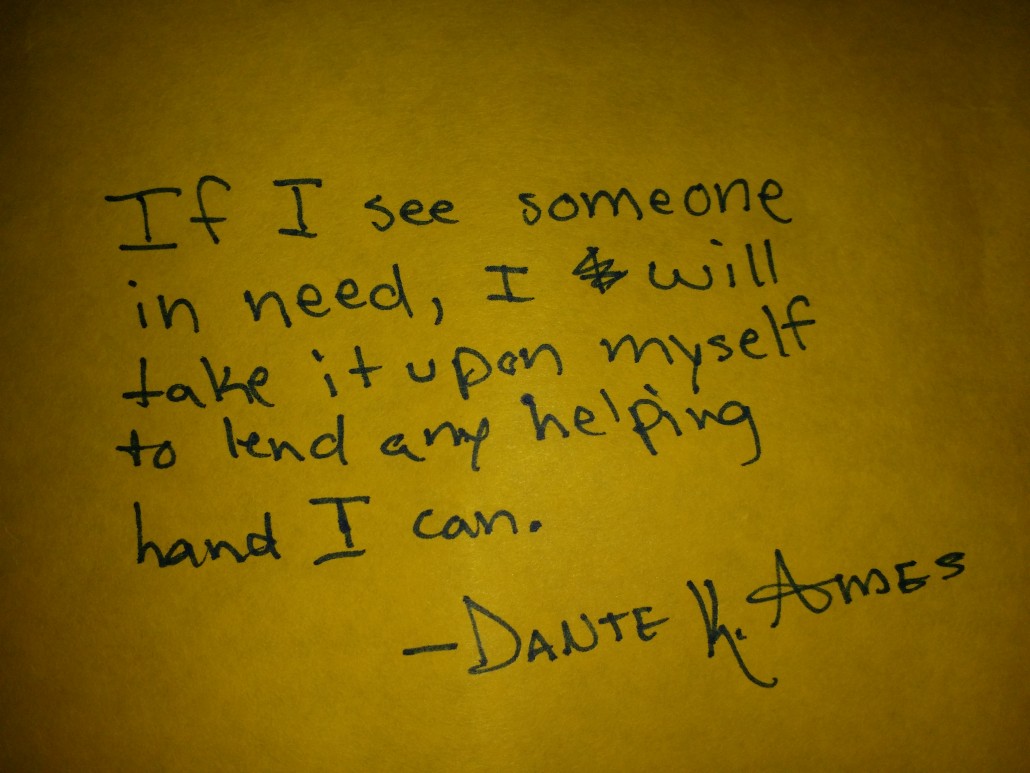 If I see someone
in need, I will
take it upon myself
to lend any helping
hand I can.
-DANTE K. AMES